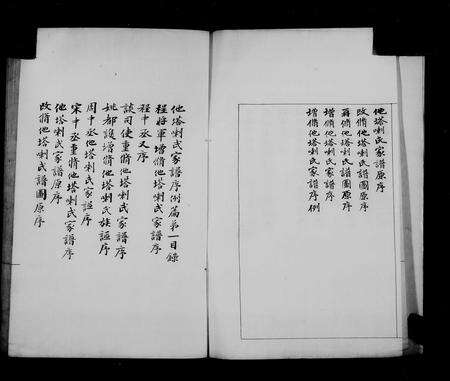 他塔喇氏家譜原序
改脩他塔喇氏譜圖原序
脩他塔喇氏譜圖原序
增脩他塔喇氏家譜序
增脩他塔喇氏家譜序例
他塔喇氏家譜序例篇第一目錄
程將軍增脩他塔喇氏家譜序
程中丞又序
談司使重脩他塔喇氏家譜序
姚都護增脩他塔喇氏族譜序
周中丞他塔喇氏家譜序
宋中丞重脩他塔喇氏家譜序
他塔喇氏家譜原序
改脩他塔喇氏譜圖原序